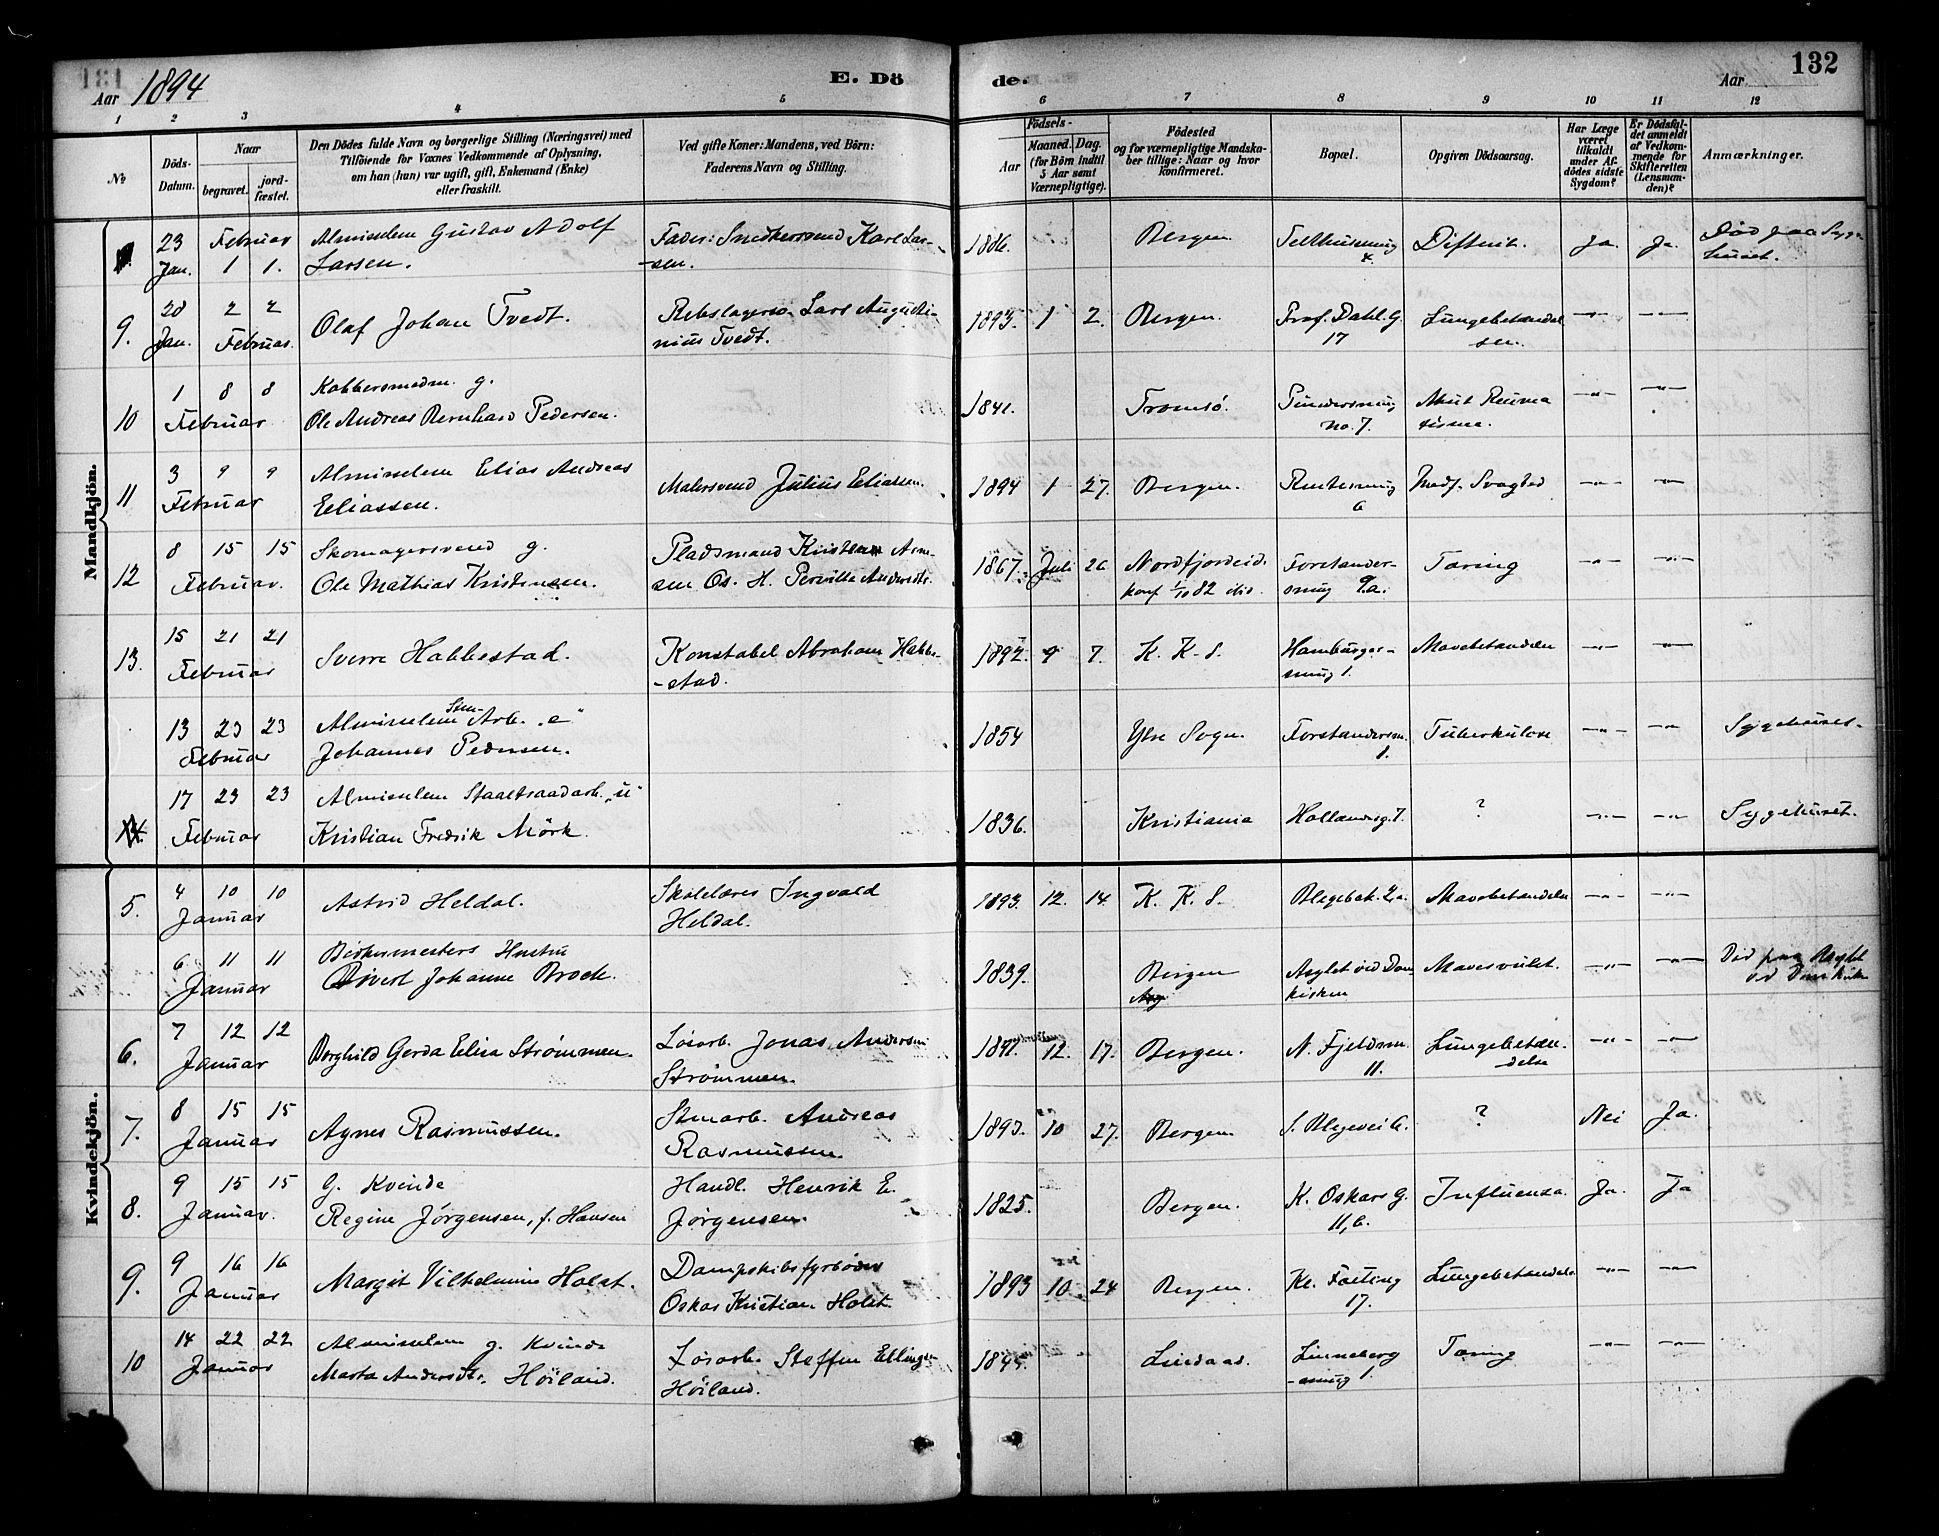 181
Aar 1894
E. Dö
de.
Aar
132
1 2 3 4 5 6 7 8 9 10 11 12
No
Döds-Datum.
Naar
begravet.
jord-fæstet.
Den Dödes fulde Navn og borgerlige Stilling (Næringsvei) med
Tilföiende for Voxnes Vedkommende af Oplysning,
om han (hun) var ugift, gift, Enkemand (Enke)
eller fraskilt.
Ved gifte Koner: Mandens, ved Börn:
Faderens Navn og Stilling.
Födsels-
Aar
Maaned. Dag.
(for Börn indtil
5 Aar samt
Værnepligtige).
Födested
og for værnepligtige Mandska-
ber tillige: Naar og hvor
konfirmeret.
Bopæl.
Opgiven Dödsaarsag.
Har Læge
været
tilkaldt
under Af-
dödes sidste
Sygdom?
Er Dödsfal-
det anmeldt
af Vedkom-
mende for
Skifteretten
(Lensman-
den)?
Anmærkninger.
Mandkjön.
23 Februar Almisselem Gustav Adolf Fader: Snedkersvend Karl Lar- 1886. Bergen Difteri Ja. Ja. Död paa Syge
Jan. 1 1. Larsen. -sen. 4 huset.
20 2 2 Olaf Johan Tvedt. Rebslagersv. Lars Augusti- 1893. 1 2. Bergen. Prof. Dahl. G. Lungebetændel -"- -"-
9. Jan. Februar. nius Tvedt. 17 sen.
1 8 8 Kobbersmedm. g. 1841. Tromsö. Akut Reuma -"- -"-
10 Februar Ole Andreas Bernhard Pedersen. no. 7. tisme.
3 9 9 Almisselem Elias Andreas Malersvend Julius Eliassen. 1894 1 27. Bergen. Medf. Svaghed -"- -"-
11 Februar Eliassen. 6
8 15 15 Skomagersvend g. Pladsmand Kristen 1867. Juli 26 Nordfjordeid. Forstander- Tæring -"- -"-
12 Februar. Ole Mathias Kristensen. sen Os. H. Pernille Andersdtr. konf 1/10 82 do. smug 9.a.
15 21 21 Sverre Habbestad. Konstabel Abraham Habbe- 1892. 9 7. K. K. S. Hamburger- Mavebetændelse -"- -"-
13. Februar -stad. smug 1.
13 23 23 Almisselem Sten-Arb. "e" 1854 Ytre Sogn Forstandersm. Tuberkulose -"- -"- Sygehuset.
Februar Johannes Pedersen. 1.
17 23 23 Almisselem "u" 1836. Kristiania Hollandsg. 7. ? -"- -"- Sygehuset.
Februar Kristian Fredrik Mörk.
Kvindekjön.
4 10 10 Astrid Heldal. Skolelærer Ingvald 1893. 12. 14. K. K. S. Mavebetændelse -"- -"-
5. Januar Heldal.
6 11 11 Bödkermesters Hustru 1839. Bergen Asylet ved Dom Mavesvulst. -"- -"- Död paa Asylet
Januar Johanne Brock. kirken ved Domkirken
7 12 12 Borghild Gerda Elisa Strømmen. Løsarb. Jonas Andersen 1892. 12. 17. Bergen. N. Fjeldsm. Lungebetæn- -"- -"-
6. Januar Strømmen. 11. delse
8 15 15 Agnes Rasmussen. Stenarb. Andreas 1893. 10 27. Bergen ? Nei Ja.
7. Januar Rasmussen.
9 15 15 G. Kvinde Handl. Henrik E. 1825. Bergen. K. Oskars G. Influensa. Ja. Ja
8. Januar. Regine Jørgensen, f. Hansen Jørgensen. 11, b.
9 16 16 Margit Vilhelmine Holst. Dampskibsfyrbøder 1893 10. 24 Bergen. Lungebetændelse -"- -"-
9. Januar Oskar Kristian Holst. 17.
14 22 22 Almisselem g. Kvinde Løsarb. Steffen Ellingsen Lindaas. Linneberg Tæring -"- -"-
10 Januar Marta Andersdtr. Høiland. Høiland. -smug 1.